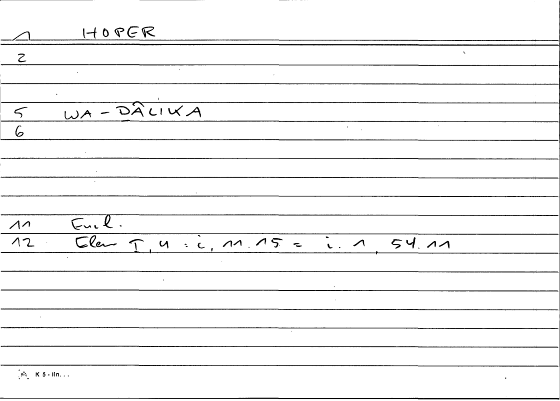 1 HOPER
2
5 WA-DÂLIKA
6
11 Eucl.
12 Elem I, 4 : i, 11.15 = i. 1, 54.11
K 5 - lin...